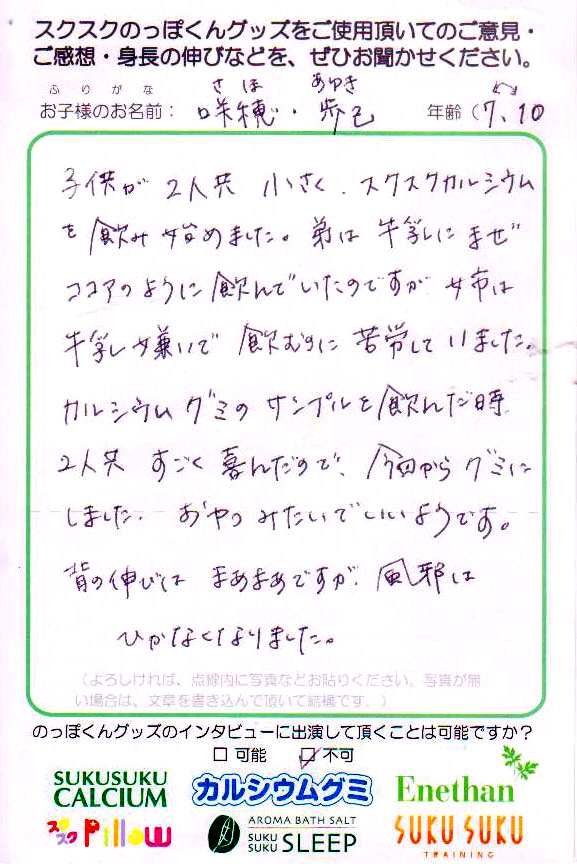 スクスクのっぽくんグッズをご使用頂いてのご意見・
ご感想・身長の伸びなどを、ぜひお聞かせください。
ふりがな さほ あゆき
お子様のお名前： 咲穂・歩己 年齢（7、10
子供が 2人共 小さく、スクスクカルシウム
を 飲み始めました。弟は 牛乳にまぜ
ココアのように飲んでいたのですが 姉は
牛乳嫌いで 飲むのに 苦労していました。
カルシウムグミの サンプルを飲んだ時
2人共 すごく 喜んだので、今回から グミに
しました。おやつみたいでいいようです。
背の伸びは まあまあですが、風邪は
ひかなくなりました。
（よろしければ、点線内に写真などお貼りください。写真が無
い場合は、文章を書き込んで頂いて結構です。）
のっぽくんグッズのインタビューに出演して頂くことは可能ですか？
□ 可能 ☑ 不可
SUKUSUKU CALCIUM カルシウムグミ Enethan
スクスク Pillow AROMA BATH SALT SUKU SUKU SLEEP SUKU SUKU TRAINING